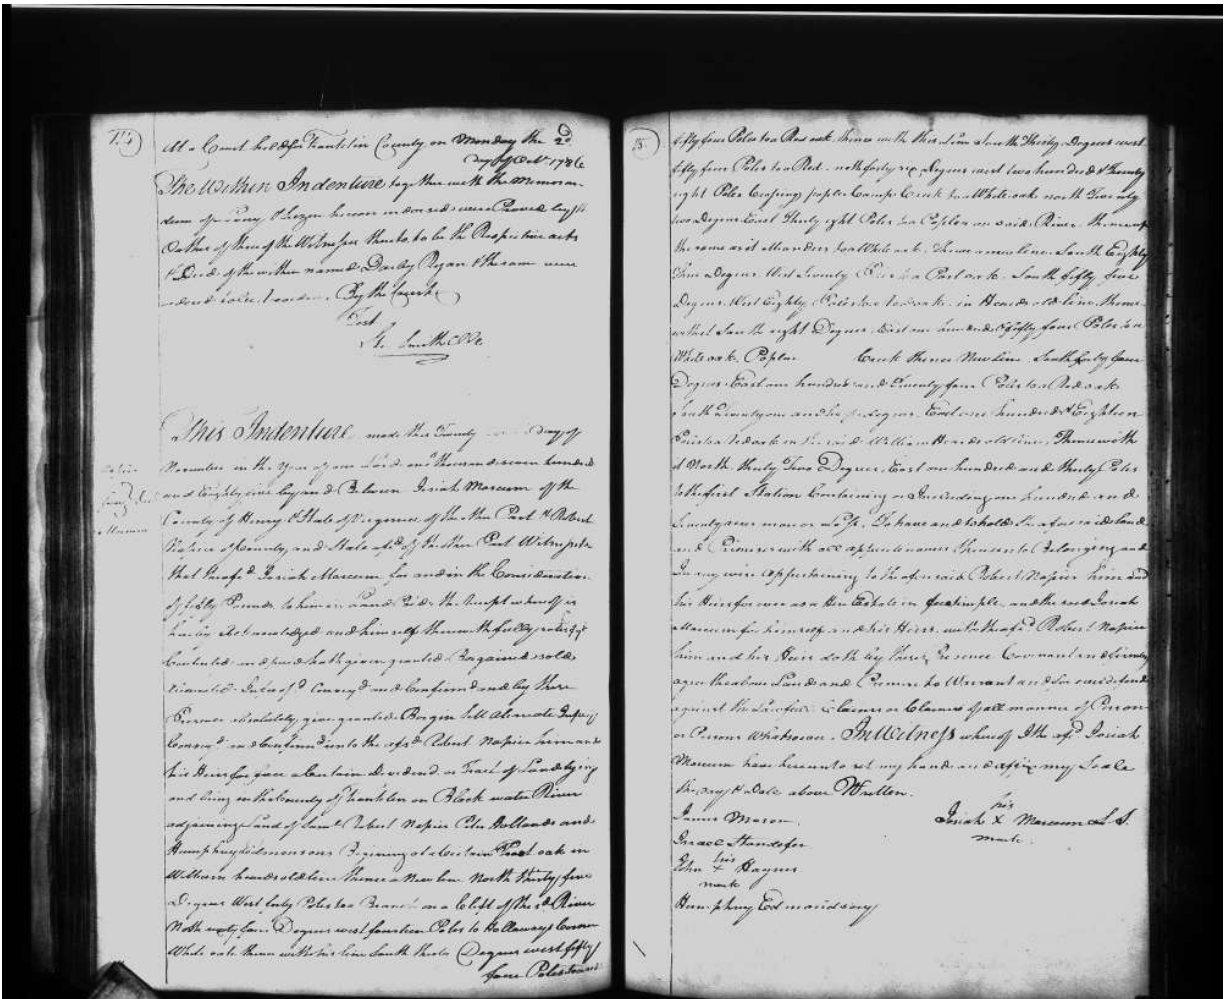 At a Court held for Franklin County on Monday the 2d
day of Octr 1786
The Within Indenture together with the Memoran-
dum of Livery & Seizen hereon indorsed were Proved by the
Oathes of three of the Witnesses thereto to be the Respective acts
& Deed of the within named Darby Ryan & the same were
ordered to be recorded. By the Court
Test
St. Smith CCk
This Indenture made this Twenty day of
November in the Year of our Lord one thousand seven hundred
and Eighty five by and Between Josiah Marcum of the
County of Henry & State of Virginia of the one Part & Robert
Napier of County and State afd of the other Part Witnesseth
that the afd Josiah Marcum for and in the Consideration
of fifty Pounds to him in hand Paid the Receipt whereof is
hereby Acknowledged and himself therewith fully satisfyd
Contented and paid hath given granted Bargained sold
and Confirmd and by these
Presence absolutely give granted Bargin Sell
and unto the afd Robert Napier him and
his Heirs for Ever a Certain Dividend or Tract of Land lying
and being in the County of Franklin on Black water River
adjoining Land of Saml Robert Napier Peter Hollands and
Humphrey Edmonsons Begining at a Certain Post oak in
William heards old line thence a New line North thirty five
Degrees West forty Poles to a Branch on a Clift of the sd River
North Degrees west fourteen Poles to Holloways Corner
White oak thence with his line South Degrees west fifty
four Poles
28
fifty four Poles to a Red oak thence with this Line South Thirty Degrees west
fifty four Poles to a Red north forty six Degrees west two hundred & Twenty
eight Poles Crossing Camp Creek to a White oak north Twenty
two Degrees East Thirty eight Poles to a Poplar on said River thence up
the same as it Meanders to a White oak thence a new line South Eighty
three Degrees West Seventy Poles to a Post oak South fifty five
Degrees West Eighty Poles to a in Heards old line thence
South eight Degrees East one hundred & fifty four Poles to a
White oak Poplar Creek thence New line South forty four
Degrees East one hundred and Twenty four Poles to a Red oak
South Twenty one and half degrees East one hundred & Eighteen
Poles to a in the said William Heards old line Thence with
it North thirty Two Degrees East one hundred and thirty Poles
to the first Station Containing or Including one hundred and
Seventy more or Less To have and to hold the afore said Land
and Premises with all appurtinances thereunto Belonging and
In any wise appertaining to the afore said Robert Napier him and
his Heirs for ever as a Estate in fee simple and the said Josiah
Marcum for himself and his Heirs unto the afd Robert Napier
him and his Heirs doth by these Presence Covenant and firmly
agree the above Land and Premises to Warrant and for ever defend
against the Lawfull Claimes or Claimes of all manner of Person
or Persons Whatsoever. In Witness whereof I the afd Josiah
Marcum have hereunto set my hand and affix my Seale
the day & Date above Written.
James Mason
Josiah his X mark Marcum L S.
Israel Standefer
John his + mark Haynes
Humphrey Edmondson